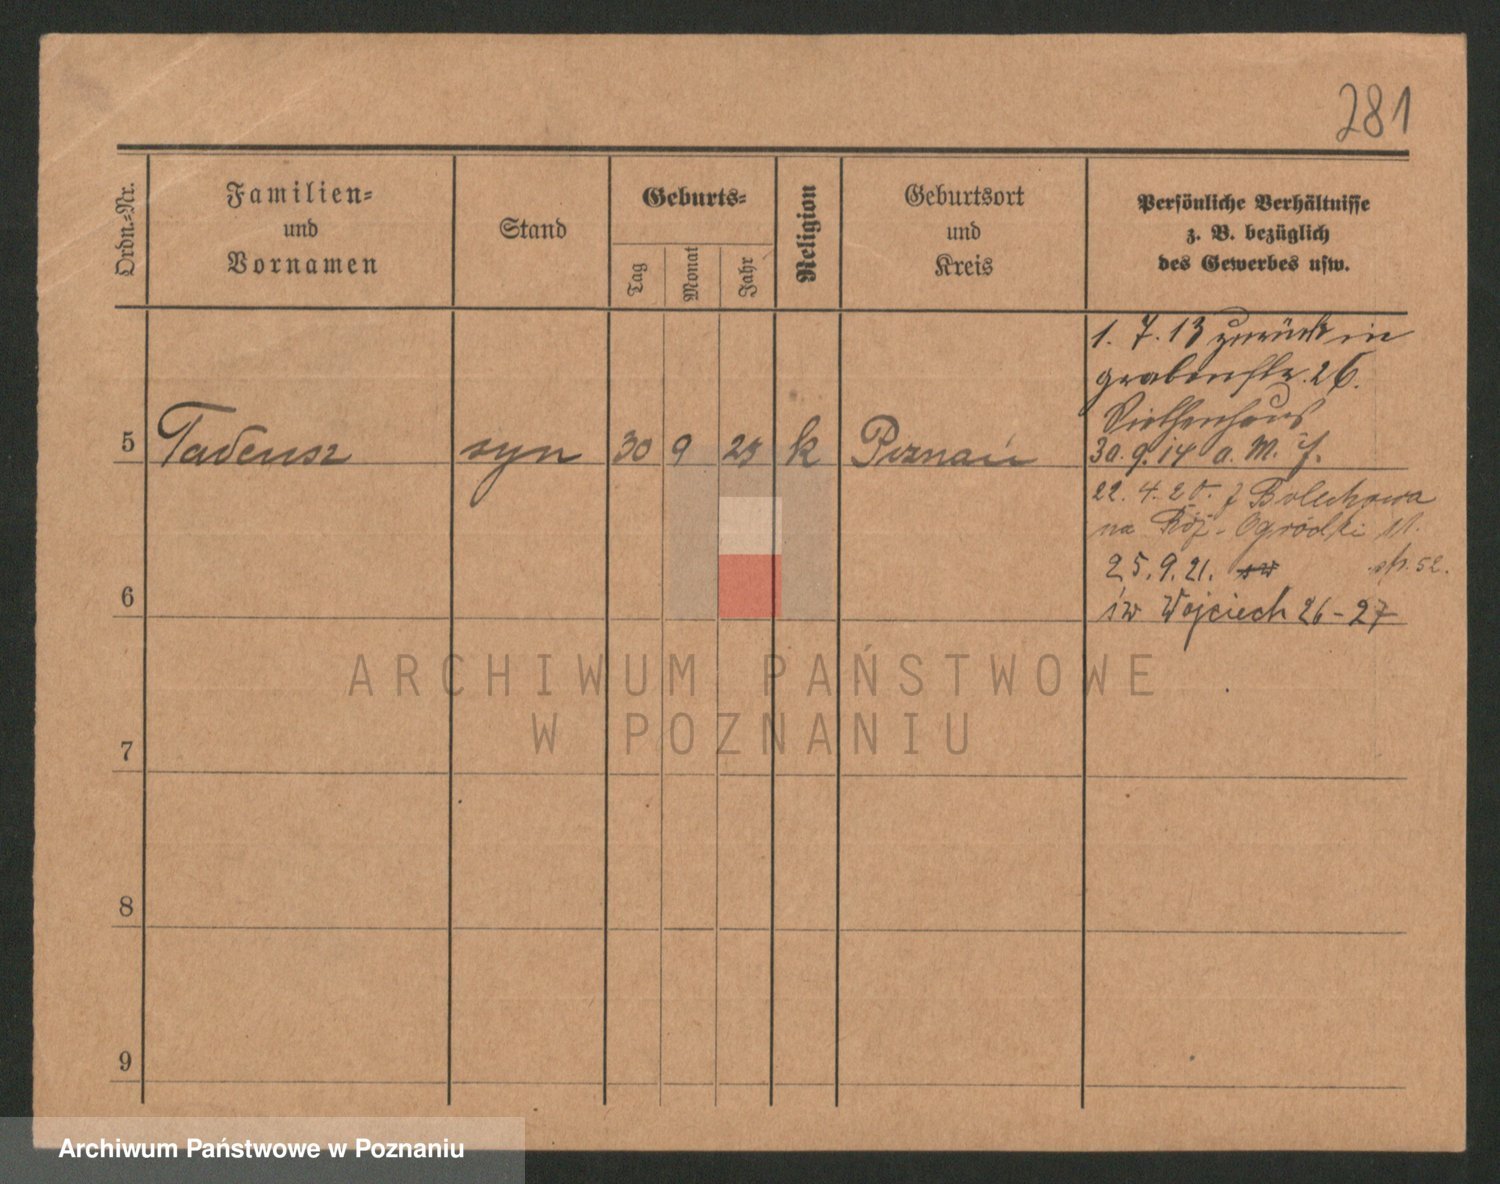 281
Ordn.-Nr.
Familien-
und
Vornamen
Stand
Geburts-
Tag
Monat
Jahr
Religion
Geburtsort
und
Kreis
Persönliche Verhältnisse
z. B. bezüglich
des Gewerbes usw.
1. 7. 13 zurück in
grabenstr. 26.
30. 9. 14 a. M. f.
5 Tadeusz syn 30 9 23 k Poznań
22. 4. 20. z Bolechowa
na Róż-Ogródki 11.
25. 9. 21. sw str. 52.
6
św Wojciech 26-27
ARCHIWUM PAŃSTWOWE
W POZNANIU
7
8
9
Archiwum Państwowe w Poznaniu